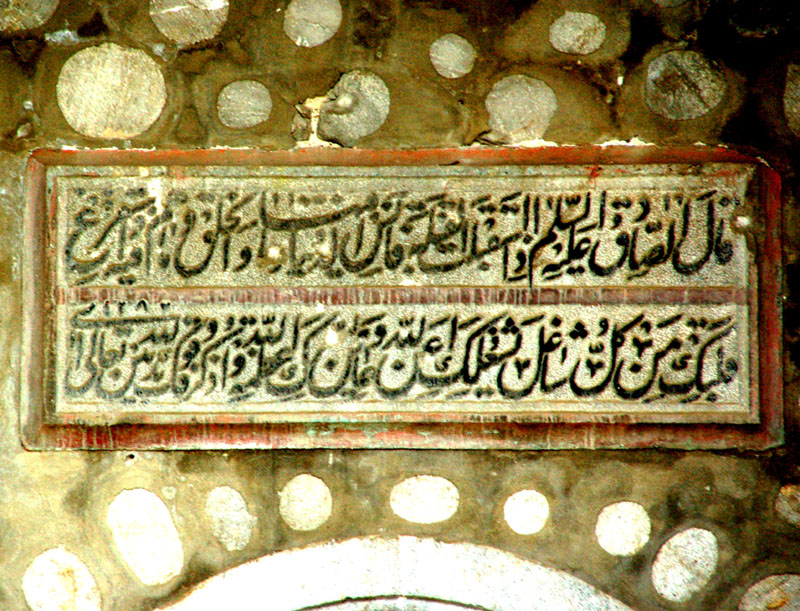 قال الصادق علیه السلم اذا استقبلت القبلة فانس الدنیا و ما فیها و الخلق و ما هم فیه و استفرغ
قلبک من کل شاغل یشغلک عن الله و عاین بسرک عظمة الله و اذکر وقوفک بین یدیه تعالی